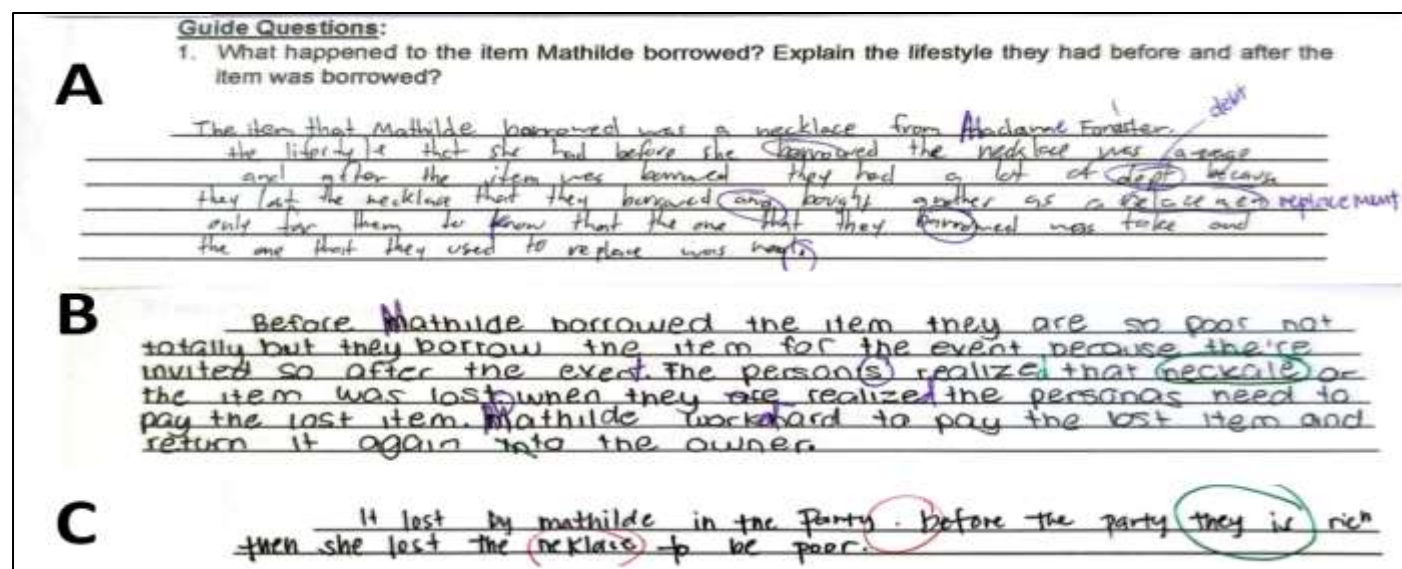 Guide Questions:
1. What happened to the item Mathilde borrowed? Explain the lifestyle they had before and after the
item was borrowed?
A
debt
The item that Mathilde borrowed was a necklace from Madame Forester.
the lifestyle that she had before she borrowed the necklace was
and after the item was borrowed they had a lot of dept because
they lost the necklace that they borrowed and bought another as a replacement
only for them to know that the one that they borrowed was fake and
the one that they used to replace was
B
Before Mathilde borrowed the item they are so poor not
totally but they borrow the item for the event because the're
invited so after the event. The person(s) realized that neckale or
the item was lost when they are realized the personas need to
pay the lost item. Mathilde work hard to pay the lost item and
return it again into the owner.
C
It lost by mathilde in the Party. before the party they is rich
then she lost the neklase to be poor.